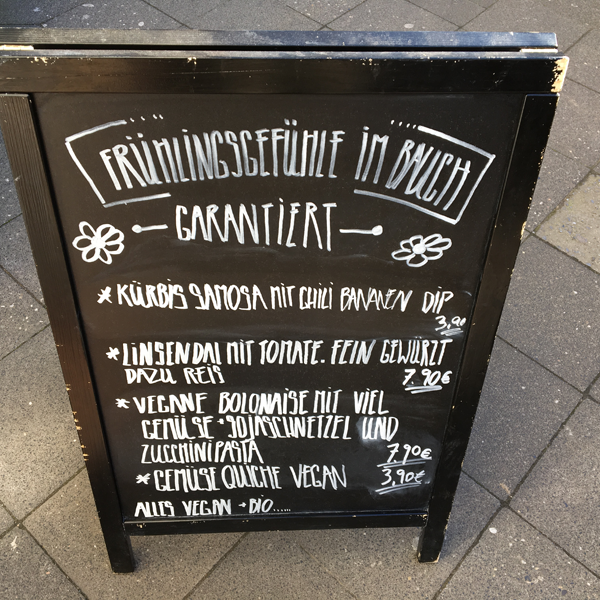 FRÜHLINGSGEFÜHLE IM BAUCH
GARANTIERT
* KÜRBIS SAMOSA MIT CHILI BANANEN DIP
3,90
* LINSENDAL MIT TOMATE. FEIN GEWÜRZT
DAZU REIS 7.90€
* VEGANE BOLONAISE MIT VIEL
GEMÜSE + SOJASCHNETZEL UND
ZUCCHINIPASTA 7,90€
* GEMÜSE QUICHE VEGAN 3,90€
ALLES VEGAN + BIO.....